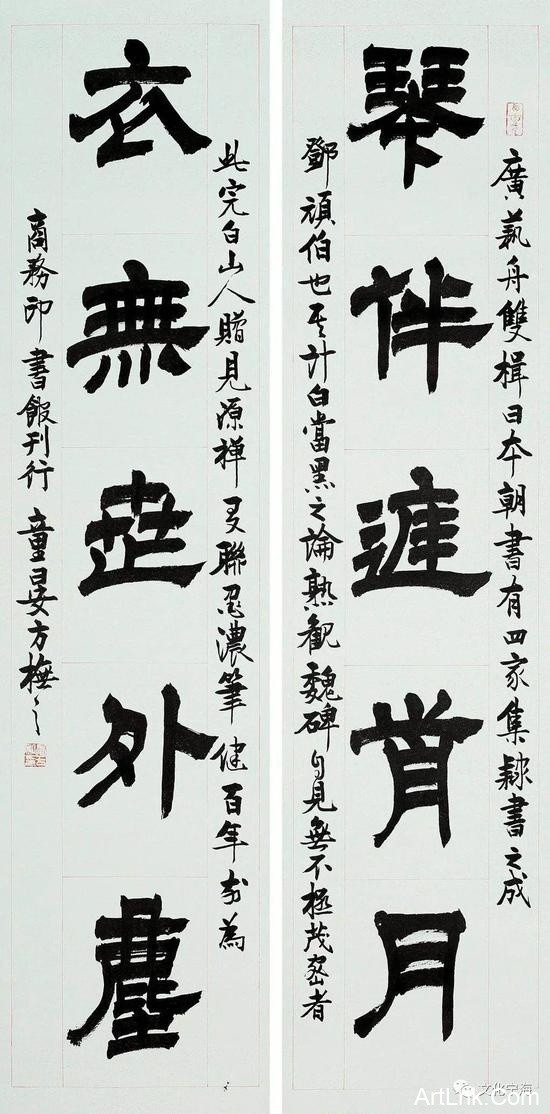 廣藝舟雙楫曰本朝書有四家集隸書之成
琴伴庭前月
鄧頑伯也其計白當黑之論熟觀魏碑自見無不極茂密者
此完白山人贈見源禪友聯墨濃筆健百年前為
衣無世外塵
商務印書館刊行 童晏方橅之
文化宁海
ArtLnk.Com